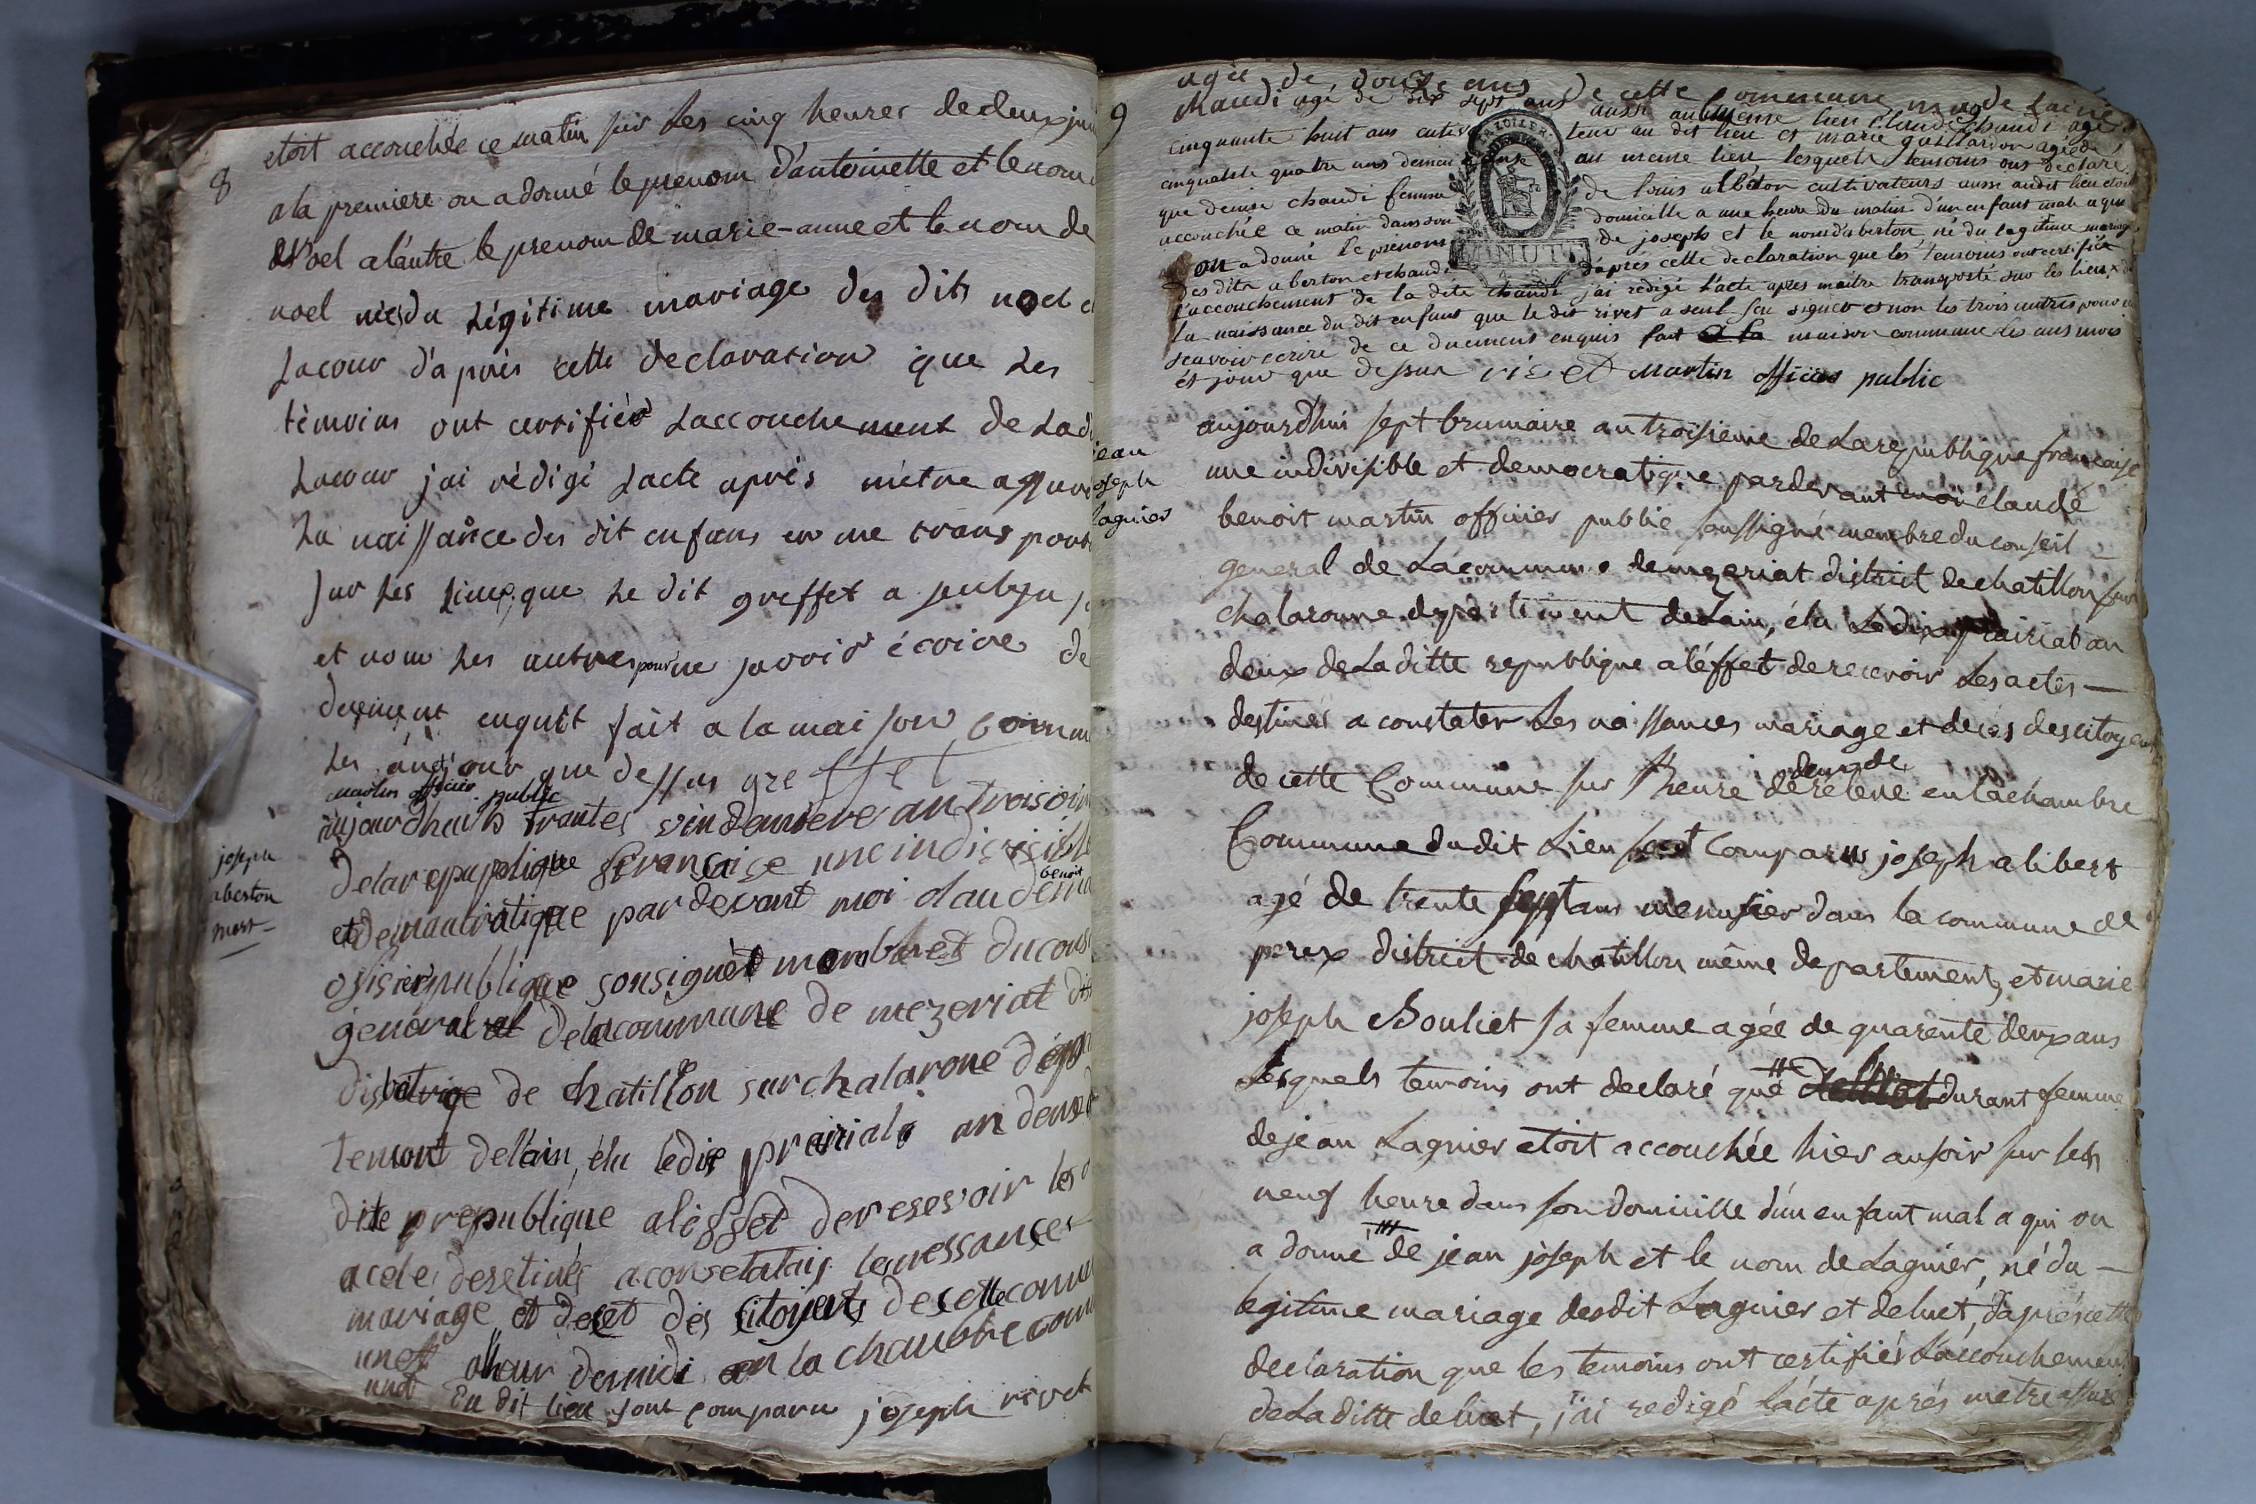 8
etoit accouchée ce matin sur Les cinq heures de deux ju
a la premiere on a donné le prenom d'antoinette et le nom
Noel a l'autre le prenom de marie-anne et le nom de
noel nées du Légitime mariage des dits noel e
Lacour d'aprés cette declaration que Les
témoins ont certifiés Laccouchement de Lad
Lacour j'ai rédigé Lacte aprés m'etre assuré
La naissance des dit enfans en me transport
sur Les Lieux, que Le dit greffet a seul su
et nom Les autres pour ne savoir écrire de
duement enquit fait a la maison Comm
Les an et jour que dessus greffet
martin officier public
joseph
aberton
mort
aujourdhuis trantes vindemiere an troisoim
de la repuplique française une indivisible
et demaucratique par devant moi claude benoit ma
ofisier publique sousignét membret du cons
genéral de la commune de mezeriat dis
distrige de chatillon sur chalarone dépar
temont de l'ain, élu le dix prairial an deux d
dite prepublique a léffet de resevoir les a
acte destinés a consetatais les nessances
mariage et deset des sitoyents de cette comm
une a heur de midi en la chanbre comm
une du dit lieu sont comparu joseph rivet
9
agée de douze ans de cette commune
chaudi agé de dix sept ans aussi au meme lieu Claude chaudi agé
cinquante huit ans cultivateur au dit lieu et marie guillardon agée de
cinquante quatre ans demeurante au meme lieu lesquels temoins ont déclaré
que denise chaudi femme de louis alberton cultivateurs aussi audit lieu etoit
accouchée ce matin dans son domicille a une heure du matin d'un enfant male a qui
on a donné le prenom de joseph et le nom d'aberton né du legitime mariage
des dits aberton et chaudi d'aprés cette declaration que les temoins ont certifiés
l'accouchement de la dite chaudi j'ai redigé l'acte aprés m'aitre transporté sur les lieux
la naissance du dit enfant que le dit rivet a seul seu signer et non les trois autres pour n
seavoir ecrire de ce duement enquis fait a la maison commune les ans mois
et jour que dessus rivet Martin officier public
jean
joseph
Lagnier
aujourd'hui sept brumaire an troisieme de La republique francaise
une indivisible et democratique pardevant moi claude
benoit martin officier public soussigné membre du conseil
general de La commune de mezeriat district de chatillon sur
chalaronne departement de Lain, élu Le dix prairial an
deux de La ditte republique a léffet de recevoir Les actes
destinés a constater Les naissances mariage et decés des citoyens
de cette Commune sur heure de relevé en la chambre
Commune dudit Lieu sont Comparus joseph alibert
agé de trente sept ans menusier dans la commune de
perex district de chatillon même departement, et marie
joseph Bouliet sa femme agée de quarente deux ans
Lesquels temoins ont declaré que durant femme
de jean Lagnier etoit accouchée hier au soir sur les
neuf heure dans son domicille d'un enfant mal a qui on
a donné de jean joseph et le nom de Lagnier, né du
legitime mariage des dit Lagnier et deluet, d'aprés cette
declaration que les temoins ont certifiés L'accouchement
de La ditte deluet, j'ai redigé L'acte aprés m'etre assuré